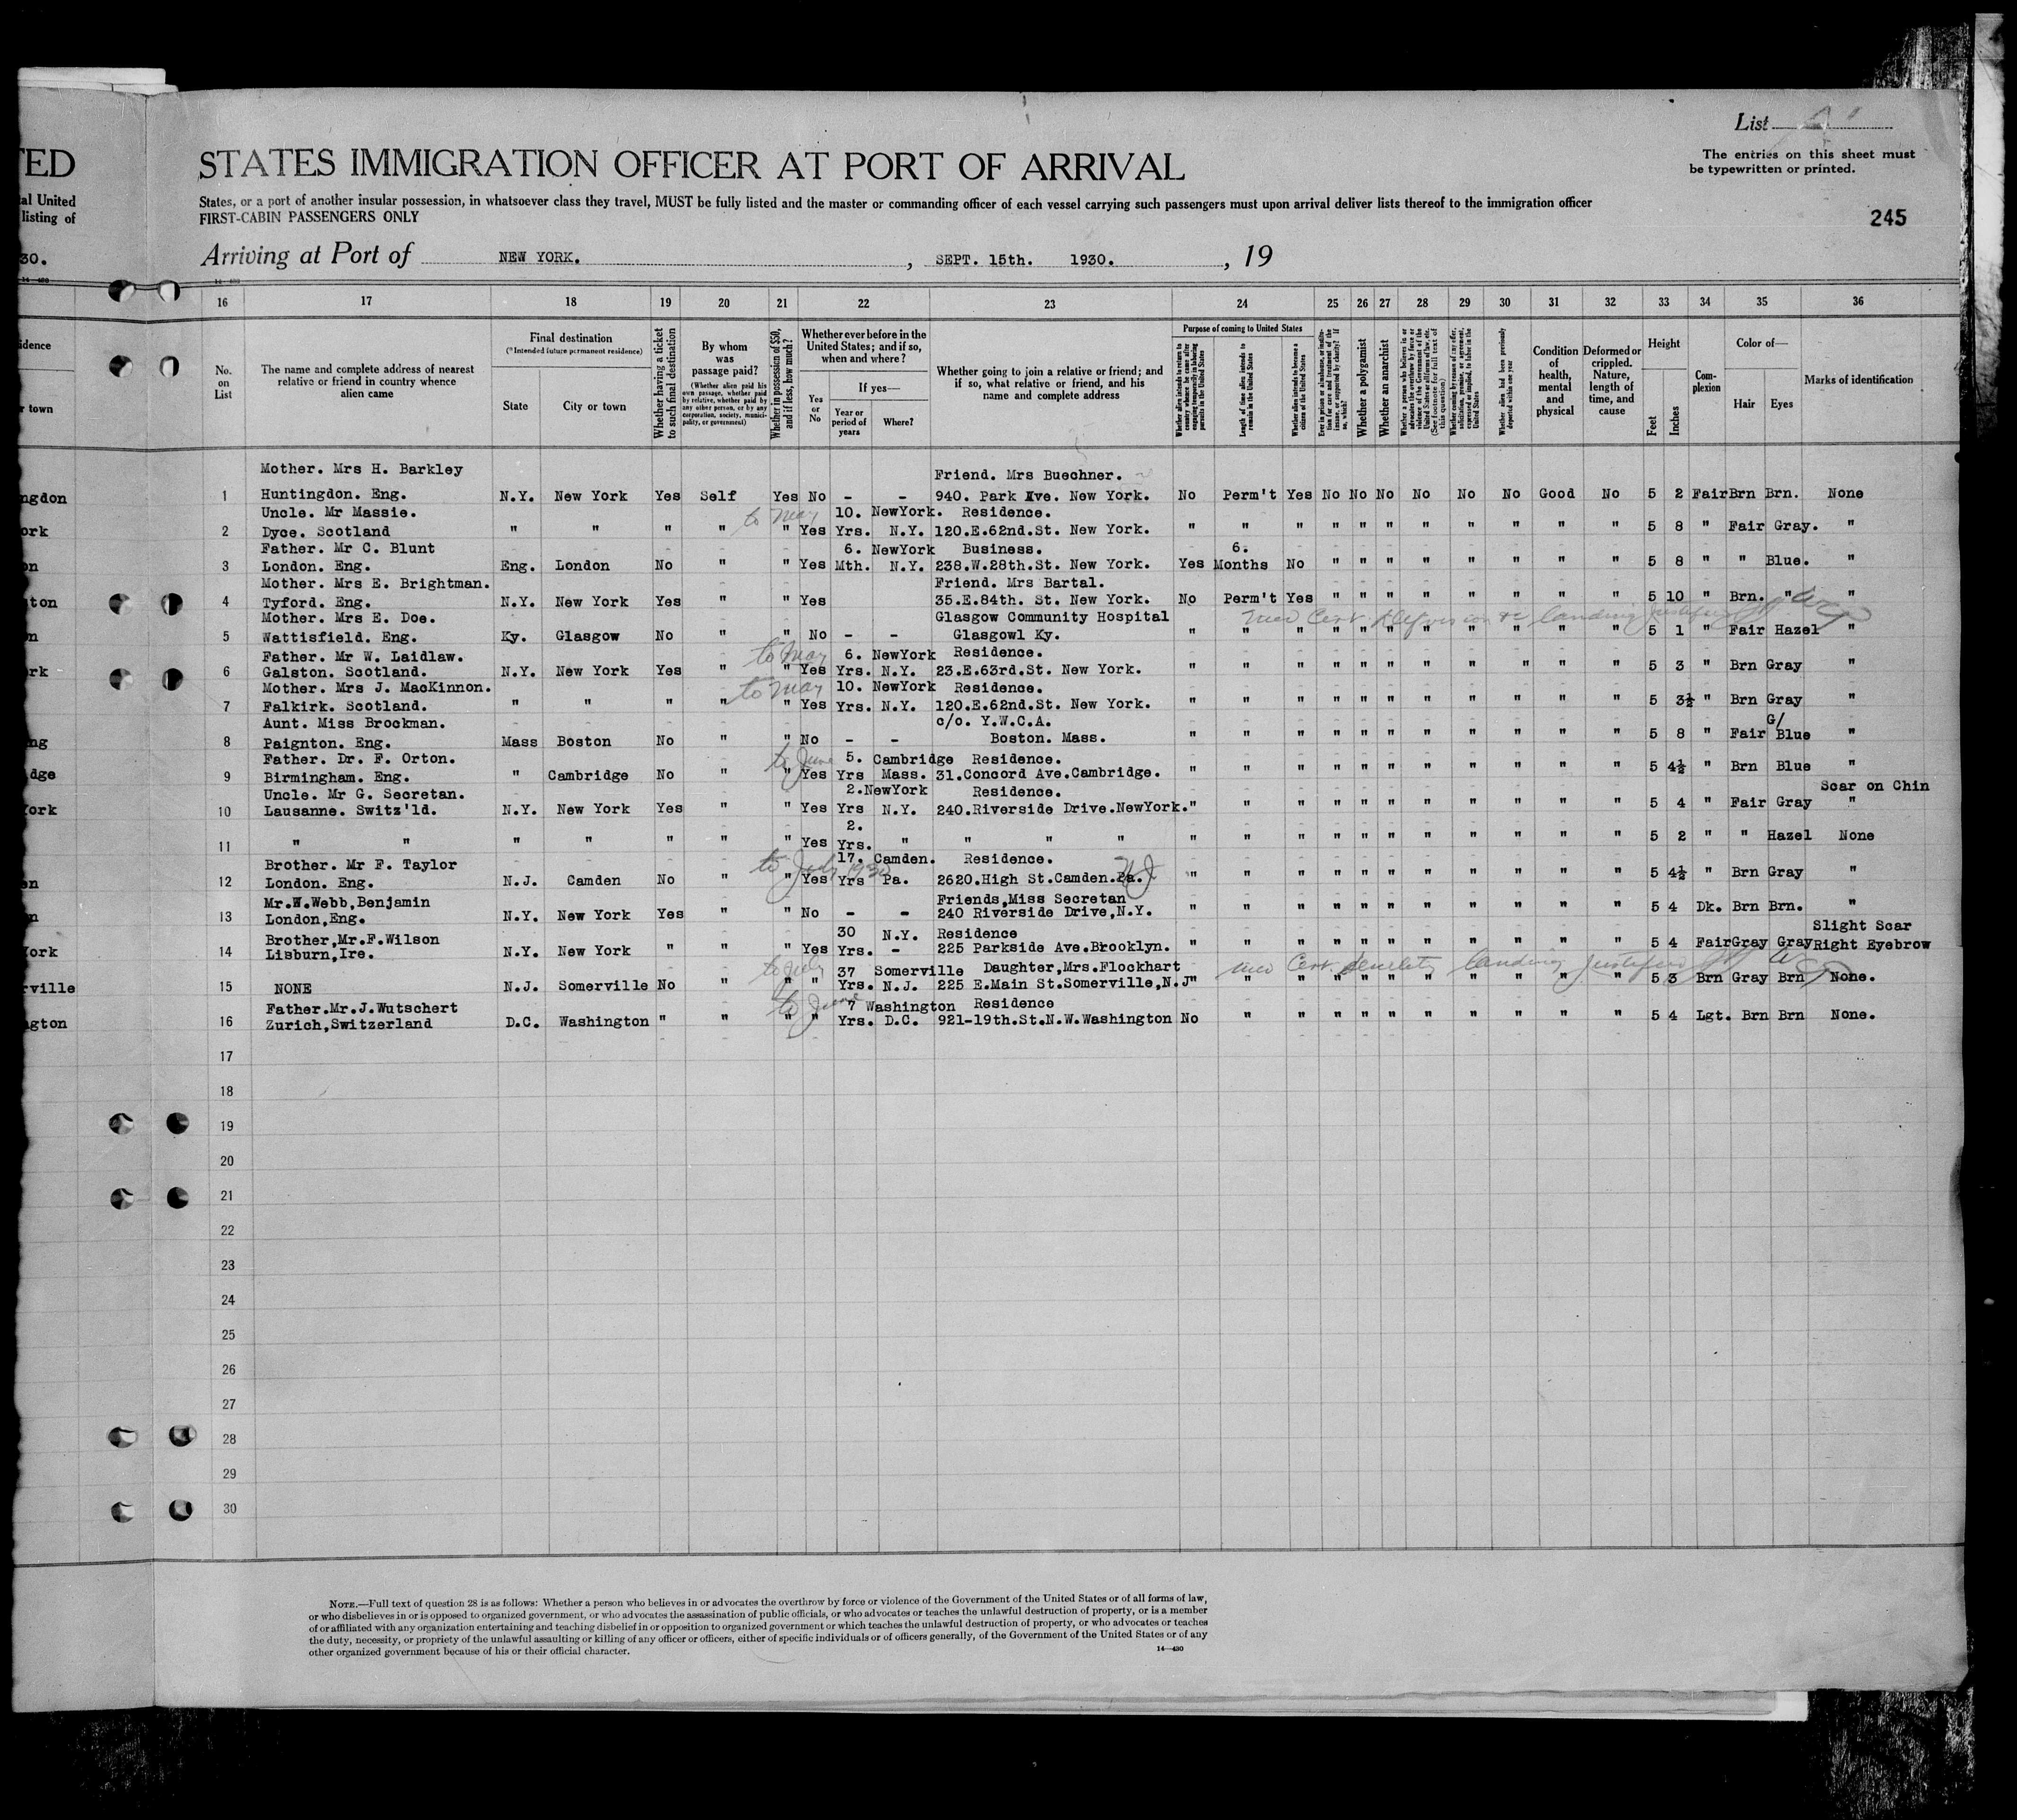 List
The entries on this sheet must
be typewritten or printed.
TED
STATES IMMIGRATION OFFICER AT PORT OF ARRIVAL
al United
listing of
States, or a port of another insular possession, in whatsoever class they travel, MUST be fully listed and the master or commanding officer of each vessel carrying such passengers must upon arrival deliver lists thereof to the immigration officer
FIRST-CABIN PASSENGERS ONLY
245
30.
Arriving at Port of NEW YORK. , SEPT. 15th. 1930. , 19
16 17 18 19 20 21 22 23 24 25 26 27 28 29 30 31 32 33 34 35 36
No. on List
The name and complete address of nearest relative or friend in country whence alien came
Final destination
(*Intended future permanent residence)
State City or town
Whether having a ticket to such final destination
By whom was passage paid?
(Whether alien paid his own passage, whether paid by relative, whether paid by any other person, or by any corporation, society, municipality, or government)
Whether in possession of $50, and if less, how much?
Whether ever before in the United States; and if so, when and where?
Yes or No
If yes—
Year or period of years
Where?
Whether going to join a relative or friend; and if so, what relative or friend, and his name and complete address
Purpose of coming to United States
Whether alien intends to return to country whence he came after engaging temporarily in laboring pursuits in the United States
Length of time alien intends to remain in the United States
Whether alien intends to become a citizen of the United States
Whether a polygamist
Whether an anarchist
Whether alien had been previously deported within one year
Condition of health, mental and physical
Deformed or crippled. Nature, length of time, and cause
Height
Feet Inches
Complexion
Color of—
Hair Eyes
Marks of identification
idence
r town
Mother. Mrs H. Barkley Friend. Mrs Buechner.
ngdon 1 Huntingdon. Eng. N.Y. New York Yes Self Yes No - - 940. Park Ave. New York. No Perm't Yes No No No No No No Good No 5 2 Fair Brn Brn. None
Uncle. Mr Massie. to May 10. NewYork. Residence.
ork 2 Dyce. Scotland " " " " " Yes Yrs. N.Y. 120.E.62nd.St. New York. " " " " " " " " " " " 5 8 " Fair Gray. "
Father. Mr C. Blunt 6. NewYork Business. 6.
on 3 London. Eng. Eng. London No " " Yes Mth. N.Y. 238.W.28th.St. New York. Yes Months No " " " " " " " " 5 8 " " Blue. "
Mother. Mrs E. Brightman. Friend. Mrs Bartal.
ton 4 Tyford. Eng. N.Y. New York Yes " " Yes 35.E.84th. St. New York. No Perm't Yes " " " " " " " " 5 10 " Brn. " "
Mother. Mrs E. Doe. Glasgow Community Hospital
n 5 Wattisfield. Eng. Ky. Glasgow No " " No - - Glasgowl Ky. " " " " " " " " " " " 5 1 " Fair Hazel "
Father. Mr W. Laidlaw. to May 6. NewYork Residence.
rk 6 Galston. Scotland. N.Y. New York Yes " " Yes Yrs. N.Y. 23.E.63rd.St. New York. " " " " " " " " " " " 5 3 " Brn Gray "
Mother. Mrs J. MacKinnon. to May 10. NewYork Residence.
7 Falkirk. Scotland. " " " " " Yes Yrs. N.Y. 120.E.62nd.St. New York. " " " " " " " " " " " 5 3½ " Brn Gray "
Aunt. Miss Brockman. c/o. Y.W.C.A. G/
ng 8 Paignton. Eng. Mass Boston No " " No - - Boston. Mass. " " " " " " " " " " " 5 8 " Fair Blue "
Father. Dr. F. Orton. to June 5. Cambridge Residence.
dge 9 Birmingham. Eng. " Cambridge No " " Yes Yrs Mass. 31.Concord Ave.Cambridge. " " " " " " " " " " " 5 4½ " Brn Blue "
Uncle. Mr G. Secretan. 2.NewYork Residence. Scar on Chin
ork 10 Lausanne. Switz'ld. N.Y. New York Yes " " Yes Yrs N.Y. 240.Riverside Drive.NewYork. " " " " " " " " " " " 5 4 " Fair Gray "
2.
11 " " " " " " " Yes Yrs. " " " " " " " " " " " " " " " " 5 2 " " Hazel None
Brother. Mr F. Taylor to July 1930 17. Camden. Residence. NJ
en 12 London. Eng. N.J. Camden No " " Yes Yrs Pa. 2620.High St.Camden.Pa. " " " " " " " " " " " 5 4½ " Brn Gray "
Mr.W.Webb,Benjamin Friends,Miss Secretan
n 13 London,Eng. N.Y. New York Yes " " No - - 240 Riverside Drive,N.Y. " " " " " " " " " " " 5 4 Dk. Brn Brn. "
Brother,Mr.F.Wilson 30 N.Y. Residence Slight Scar
ork 14 Lisburn,Ire. N.Y. New York " " " Yes Yrs. - 225 Parkside Ave.Brooklyn. " " " " " " " " " " " 5 4 Fair Gray Gray Right Eyebrow
to July 37 Somerville Daughter,Mrs.Flockhart
rville 15 NONE N.J. Somerville No " " " Yrs. N.J. 225 E.Main St.Somerville,N.J " " " " " " " " " " " 5 3 Brn Gray Brn None.
Father.Mr.J.Wutschert to June 7 Washington Residence
ngton 16 Zurich,Switzerland D.C. Washington " " " " Yrs. D.C. 921-19th.St.N.W.Washington No " " " " " " " " " " 5 4 Lgt. Brn Brn None.
17
18
19
20
21
22
23
24
25
26
27
28
29
30
NOTE.—Full text of question 28 is as follows: Whether a person who believes in or advocates the overthrow by force or violence of the Government of the United States or of all forms of law,
or who disbelieves in or is opposed to organized government, or who advocates the assassination of public officials, or who advocates or teaches the unlawful destruction of property, or is a member
of or affiliated with any organization entertaining and teaching disbelief in or opposition to organized government or which teaches the unlawful destruction of property, or who advocates or teaches
the duty, necessity, or propriety of the unlawful assaulting or killing of any officer or officers, either of specific individuals or of officers generally, of the Government of the United States or of any
other organized government because of his or their official character.
14—430